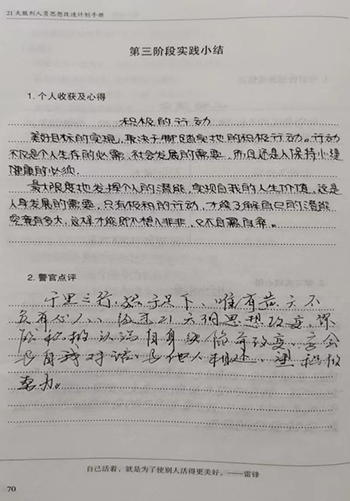 21天服刑人员思想改造计划手册
第三阶段实践小结
1. 个人收获及心得
积极的行动
美好目标的实现，取决于脚踏实地的积极行动。行动
不仅是个人生存的必需，社会发展的需要，而且还是人保持心理
健康的必须。
最大限度地发挥个人的潜能，实现自我的人生价值，这是
人身发展的需要，只有积极的行动，才能了解自己的潜能
究竟有多大，这样才能既不想入非非，又不自暴自弃。
2. 警官点评
千里之行，始于足下，唯有苦天不
负有心人，21天的思想改变，课
积极认识自身
与自我对话，与他人相处，望积极
自己活着，就是为了使别人活得更美好。——雷锋
70